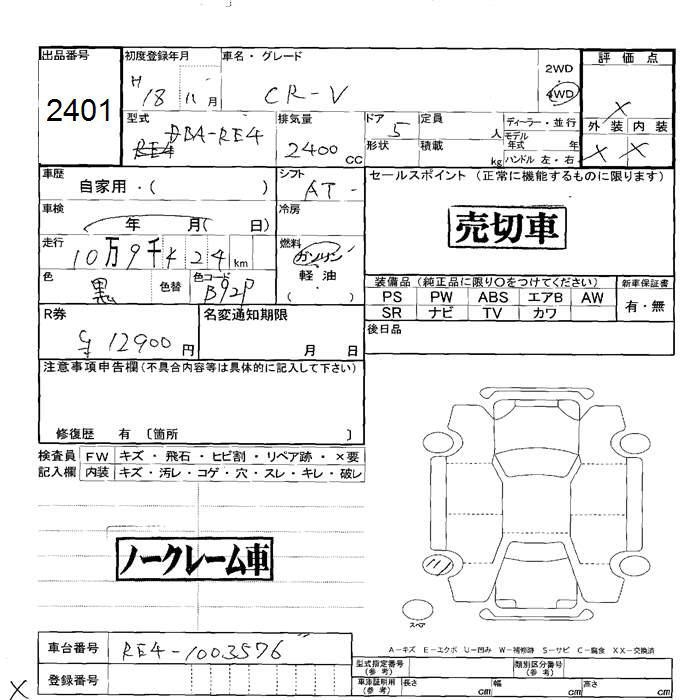 出品番号
2401
初度登録年月
H 18 11 月
車名・グレード
CR-V
2WD
4WD
評価点
X
外装 内装
X X
型式
RE4 DBA-RE4
排気量
2400 CC
ドア
5
形状
定員
人
積載
kg
ディーラー・並行
モデル年式 年
ハンドル 左・右
車歴
自家用・( )
シフト
AT -
車検
年 月( 日)
冷房
走行
10万9千424 km
燃料
ガソリン
軽油
( )
色
黒
色替
色コード
B92P
R券
12900円
名変通知期限
月 日
セールスポイント (正常に機能するものに限ります)
売切車
装備品(純正品に限り○をつけてください)
新車保証書
PS PW ABS エアB AW
有・無
SR ナビ TV カワ
後日品
注意事項申告欄(不具合内容等は具体的に記入して下さい)
修復歴 有 〔箇所 〕
検査員記入欄
FW キズ・飛石・ヒビ割・リペア跡・×要
内装 キズ・汚レ・コゲ・穴・スレ・キレ・破レ
ノークレーム車
スペア
A-キズ E-エクボ U-凹み W-補修跡 S-サビ C-腐食 XX-交換済
車台番号
RE4-1003576
登録番号
X
型式指定番号(参考)
類別区分番号(参考)
車庫証明用(参考)
長さ cm
幅 cm
高さ cm